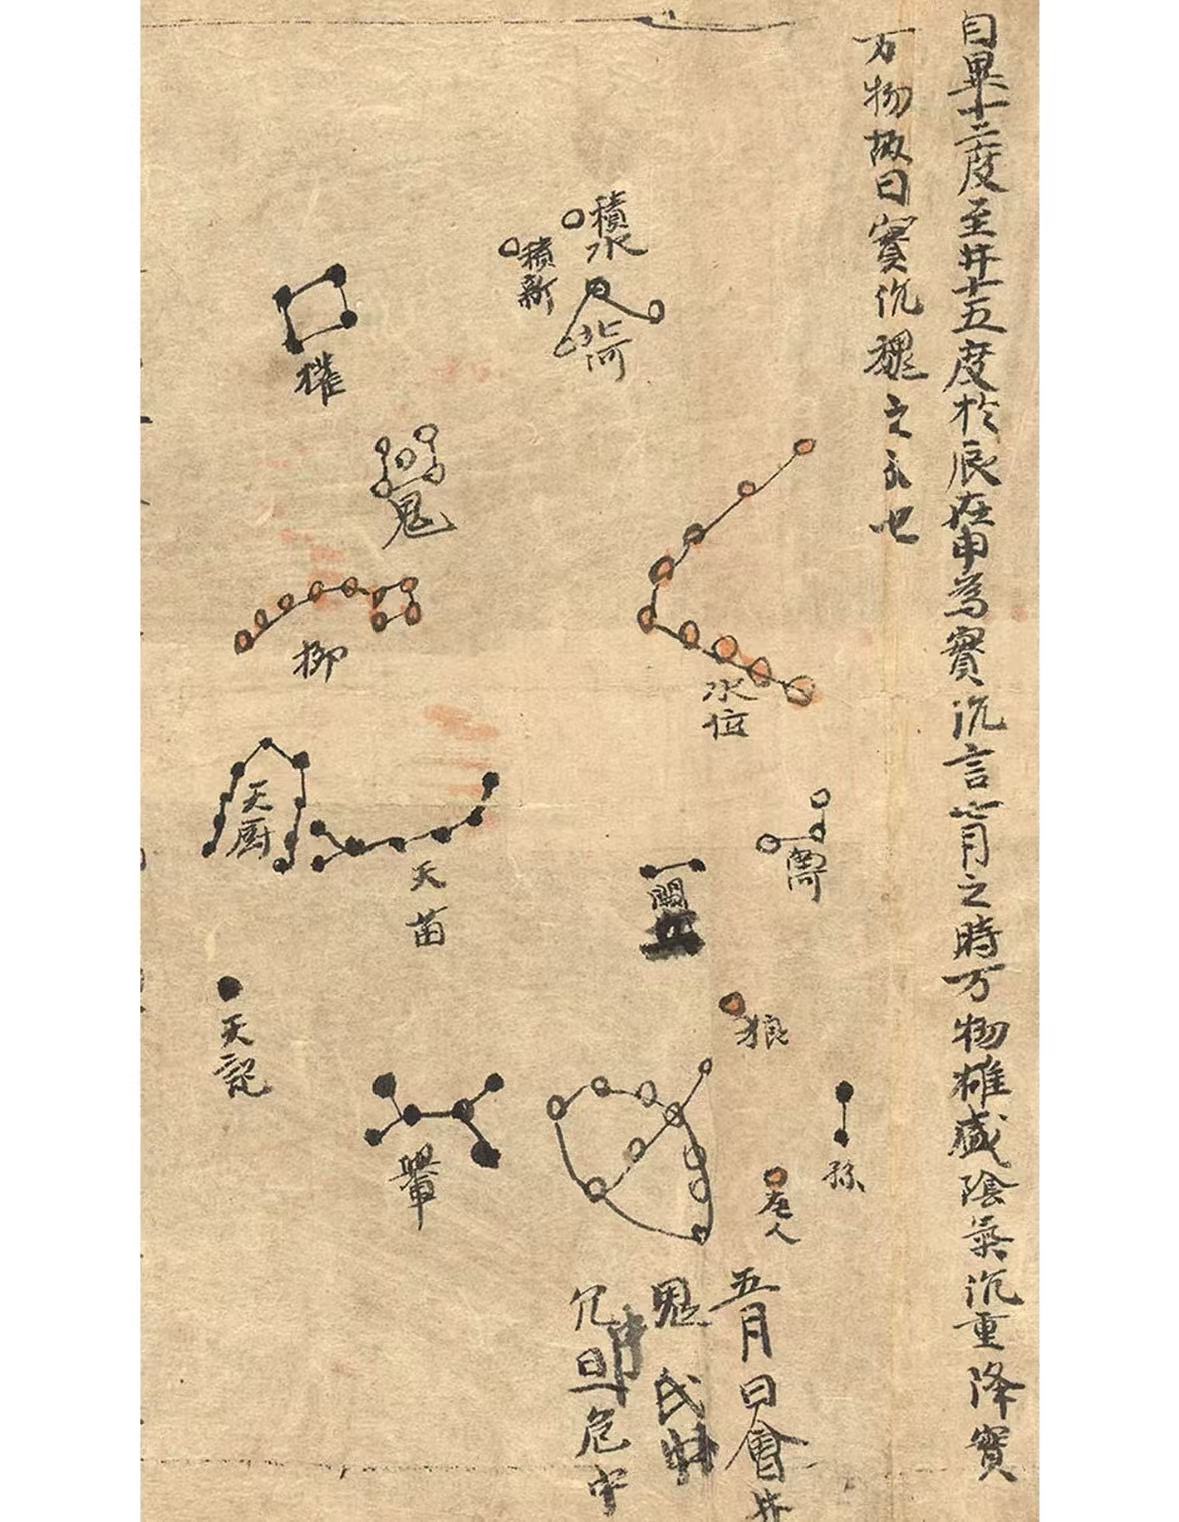 自畢十二度至井十五度於辰在申為實沉言七月之時万物雄盛陰氣沉重降實
万物故曰實沉魏之分也
積水
積新
北河
權
鬼
柳
水位
南河
闕丘
狼
天厨
天苗
天記
孫
老人
五月日會井
鬼氐中
亢中旦危中